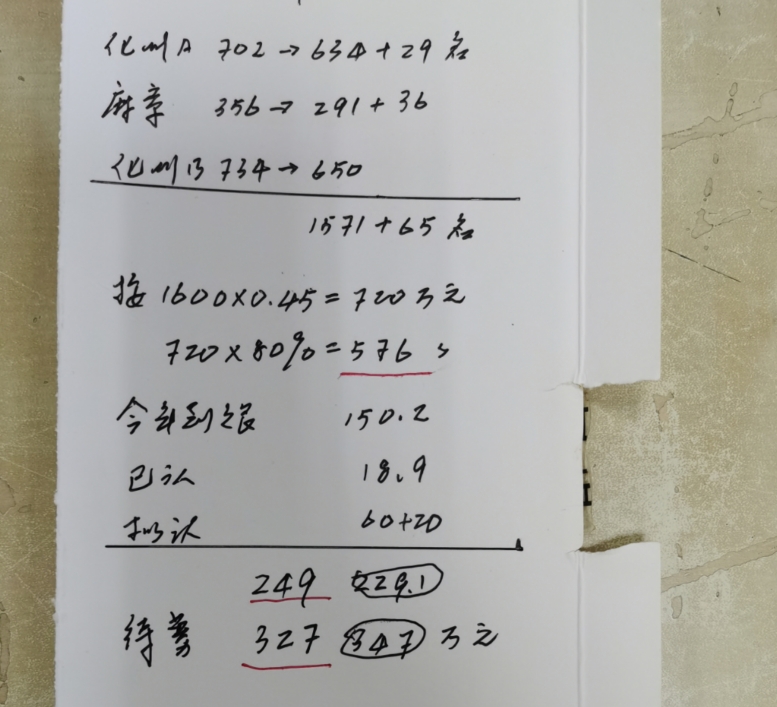 化州A 702→634+29名
麻章 356→291+36
化州B 734→650
1571+65名
按1600×0.45=720万元
720×80%=576
今年到账 150.2
已认 18.9
拟认 60+20
249 229.1
待筹 327 347 万元